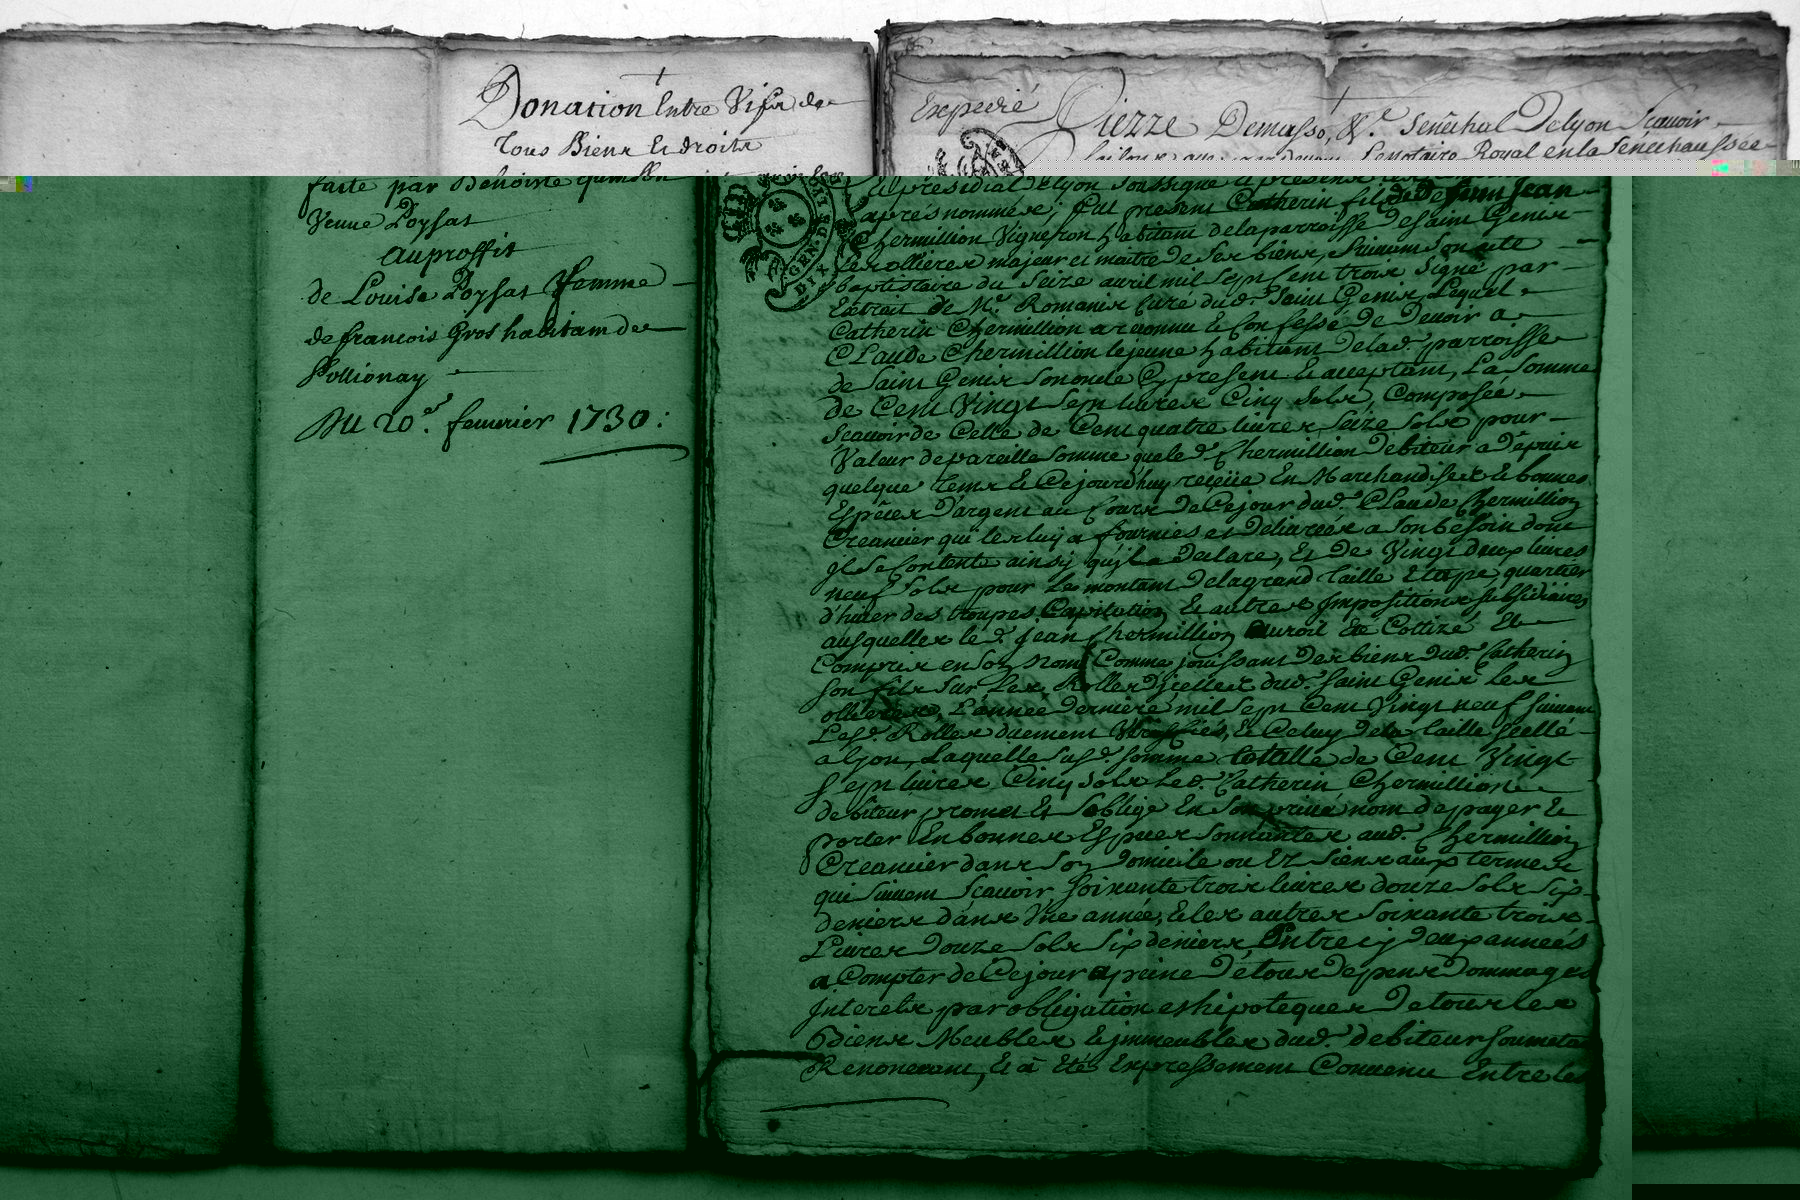 Donation Entre Vifs de
Tous Biens et droits
faite par Benoiste
Veuve Poysat
au proffit
de Louise Poysat femme
de francois Gros habitant de
Pollionay
Du 20e. feuvrier 1730:
Expedié
Pierre Demasso, &c. Senéchal De Lyon Scavoir
notaire Royal en la Sénéchaussée
et présidial de Lyon Soussigné et présents les
aprés nommés; fut present Catherin fils de feu Jean
Chermillion Vigneron habitant de la parroisse de Saint Genis
les ollieres majeur et maitre de ses biens, suivant son acte
baptistaire du Seize avril mil sept Cent trois Signé par
Extrait de Mr. Romanis Curé dud. Saint Genis, Lequel
Catherin Chermillion a reconnu et Confessé de Devoir a
CLaude Chermillion le jeune habitant de lad. parroisse
de Saint Genis son oncle Cy present et acceptant, La Somme
de Cent Vingt Sept livres Cinq sols, Composée
Scavoir de Celle de Cent quatre livres Seize Sols pour
Valeur de pareille Somme que le d. Chermillion Debiteur a Depuis
quelque tems et Cejourdhuy reçüe En Marchandises et bonnes
Espéces D'argent au Cours De Cejour dud. CLaude Chermillion
Creancier qui les luy a fournies et deliurées a son besoin dont
jl se Contente ainsy qu'jl a declaré, Et De Vingt deux livres
neuf Sols pour Le montant De la grand Taille Etape, quartier
d'hiuer des troupes Capitation Et autres Jmpositions subsidiaires
ausquelles le d. Jean Chermillion auroit été Cottizé Et
Compris en son Nom Comme jouissant Des biens Dud. Catherin
son fils sur Les Rolles D'jcelles dud. Saint Genis Les
ollieres, L'année Derniere mil Sept Cent Vingt neuf suivant
Lesd. Rolles duement Veriffiés, Et Celuy De la Taille scellé
a Lyon, Laquelle susd. somme totalle de Cent Vingt
Sept livres Cinq sols Led. Catherin Chermillion
debiteur promet Et s'oblige En Son privé nom de payer Et
porter En bonnes Espéces Sonnantes aud. Chermillion
Creancier dans Son Domicile ou Et Siens aux termes
qui suivent Scavoir soixante trois livres douze Sols Six
deniers dans Vne année, Et les autres Soixante trois
Livres Douze Sols Six deniers, Entre cy Deux années
a Compter de Cejour a peine De tous Depens Dommages
Jnterets par obligation et hipoteques De tous les
Biens Meubles Et jmmeubles dud. debiteur soumets
Renoncant, Et a Eté Expressement Convenu Entre les